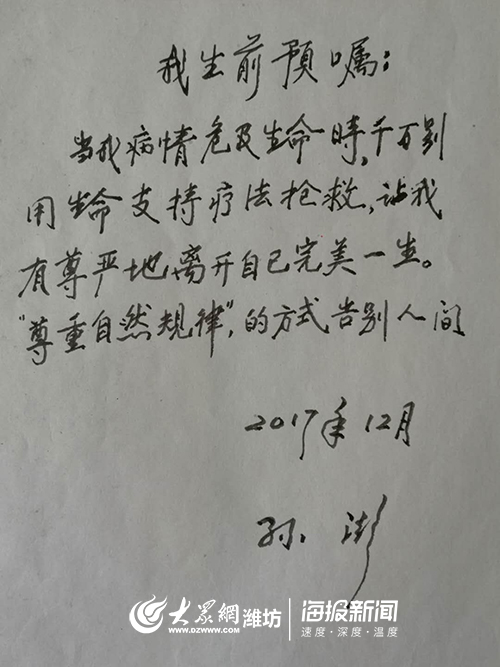 我生前預嘱：
当我病情危及生命時，千万别
用生命支持疗法抢救，让我
有尊严地离开自己完美一生。
“尊重自然规律”，的方式告别人间
2017年12月
孙澎
大眾網潍坊 海报新闻
WWW.DZWWW.COM 速度·深度·温度